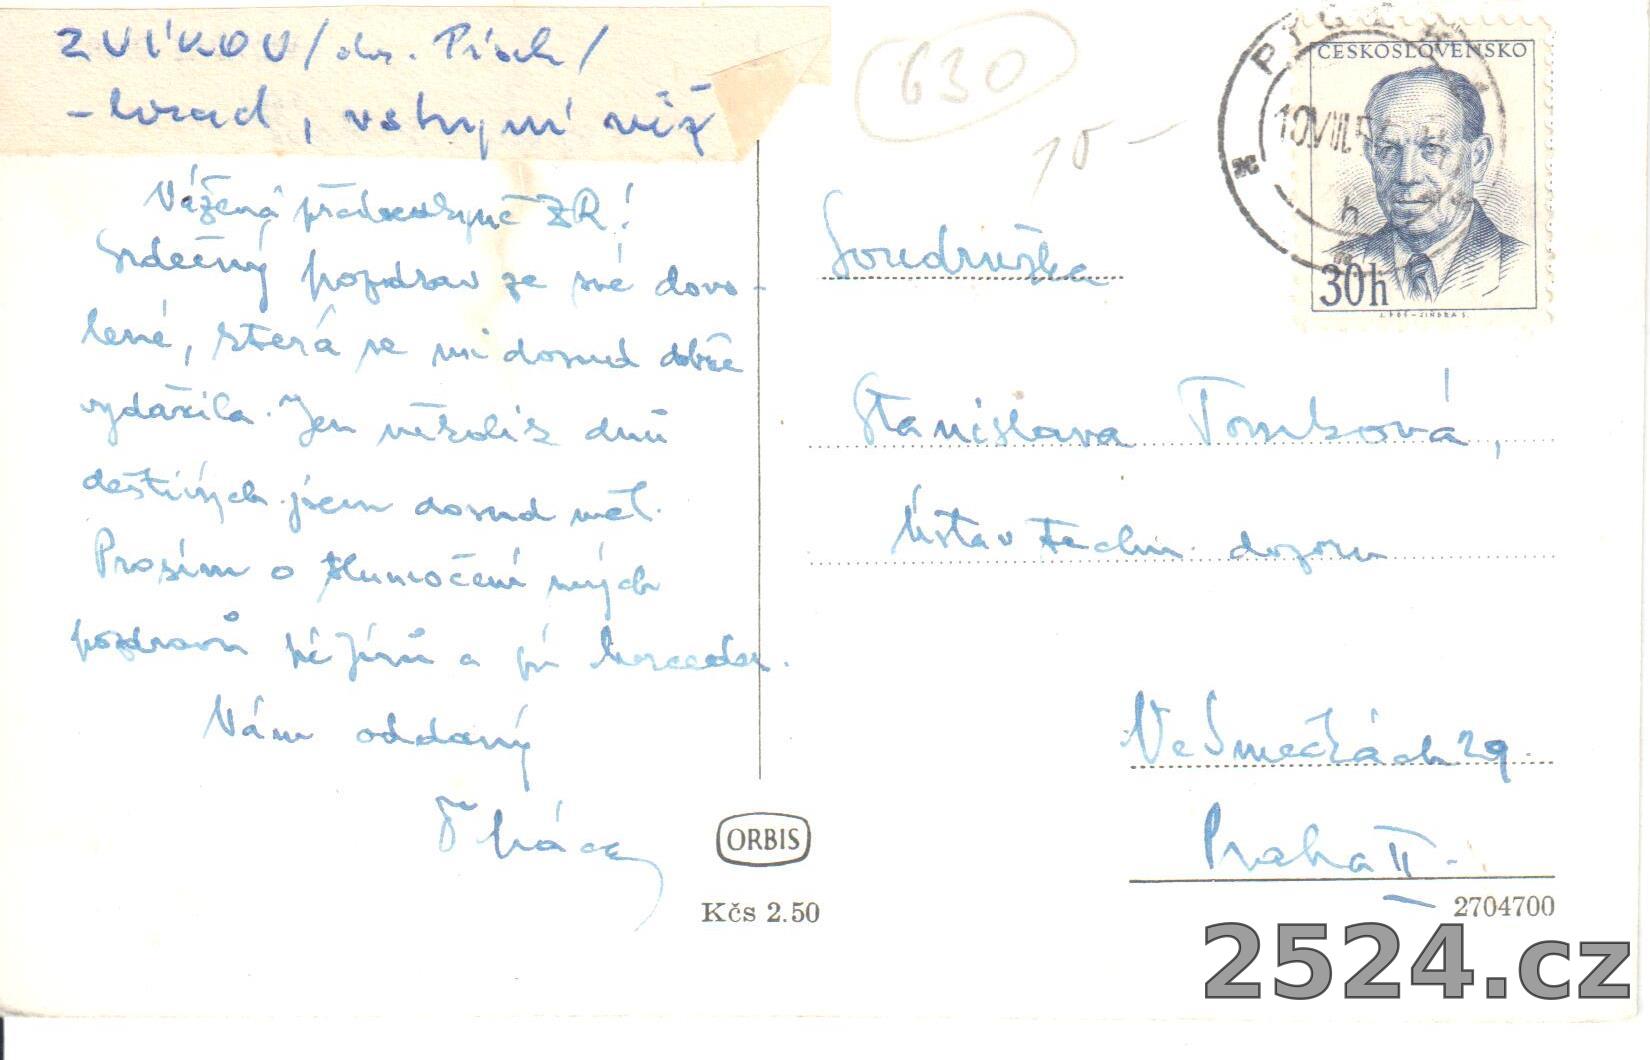 ZVÍKOV/okr. Písek/
- hrad, vstupní věž
630
10-
ČESKOSLOVENSKO
10VIII.5
h
30h
J. POŠ-JINDRA S.
Vážená předsedkyně ZR!
Srdečný pozdrav ze své dovo-
lené, která se mi dosud dobře
vydařila. Jen několik dnů
deštivých jsem dosud měl.
Prosím o tlumočení mých
pozdravů
a
Vám oddaný
Soudružka
Stanislava Tomková,
Ústav techn. dozoru
Ve Smečkách 29.
Praha II.
ORBIS
Kčs 2.50
2704700
2524.cz